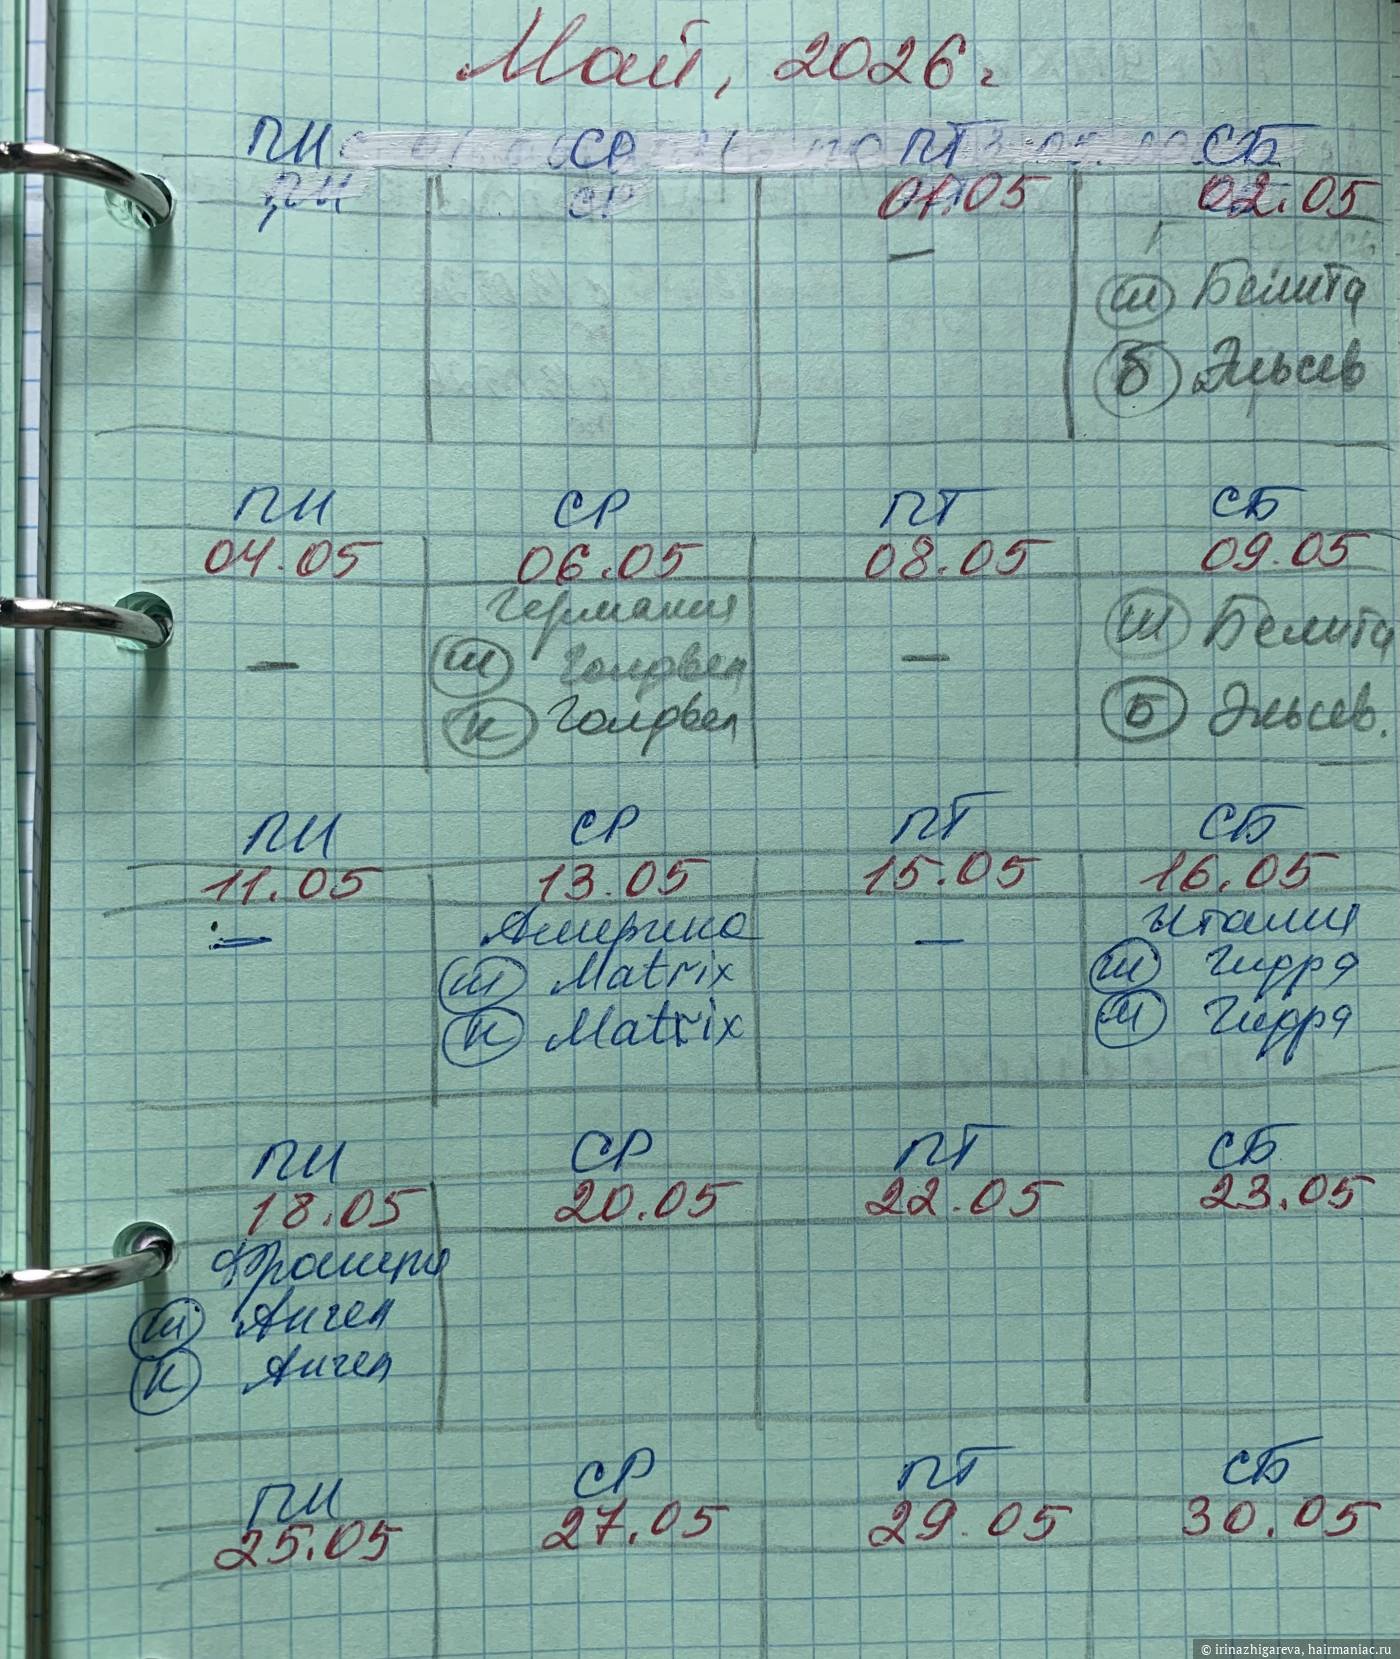 Май, 2026г
ПН СР ПТ СБ
ПН СР 01.05 02.05
—
Ш Белита
Б Эльсев
ПН СР ПТ СБ
04.05 06.05 08.05 09.05
Германия
— Ш Голдвел — Ш Белита
К Голдвел Б Эльсев.
ПН СР ПТ СБ
11.05 13.05 15.05 16.05
— Америка — Италия
Ш Matrix Ш Гидра
К Matrix М Гидра
ПН СР ПТ СБ
18.05 20.05 22.05 23.05
Франция
Ш Ангел
К Ангел
ПН СР ПТ СБ
25.05 27.05 29.05 30.05
© irinazhigareva, hairmaniac.ru